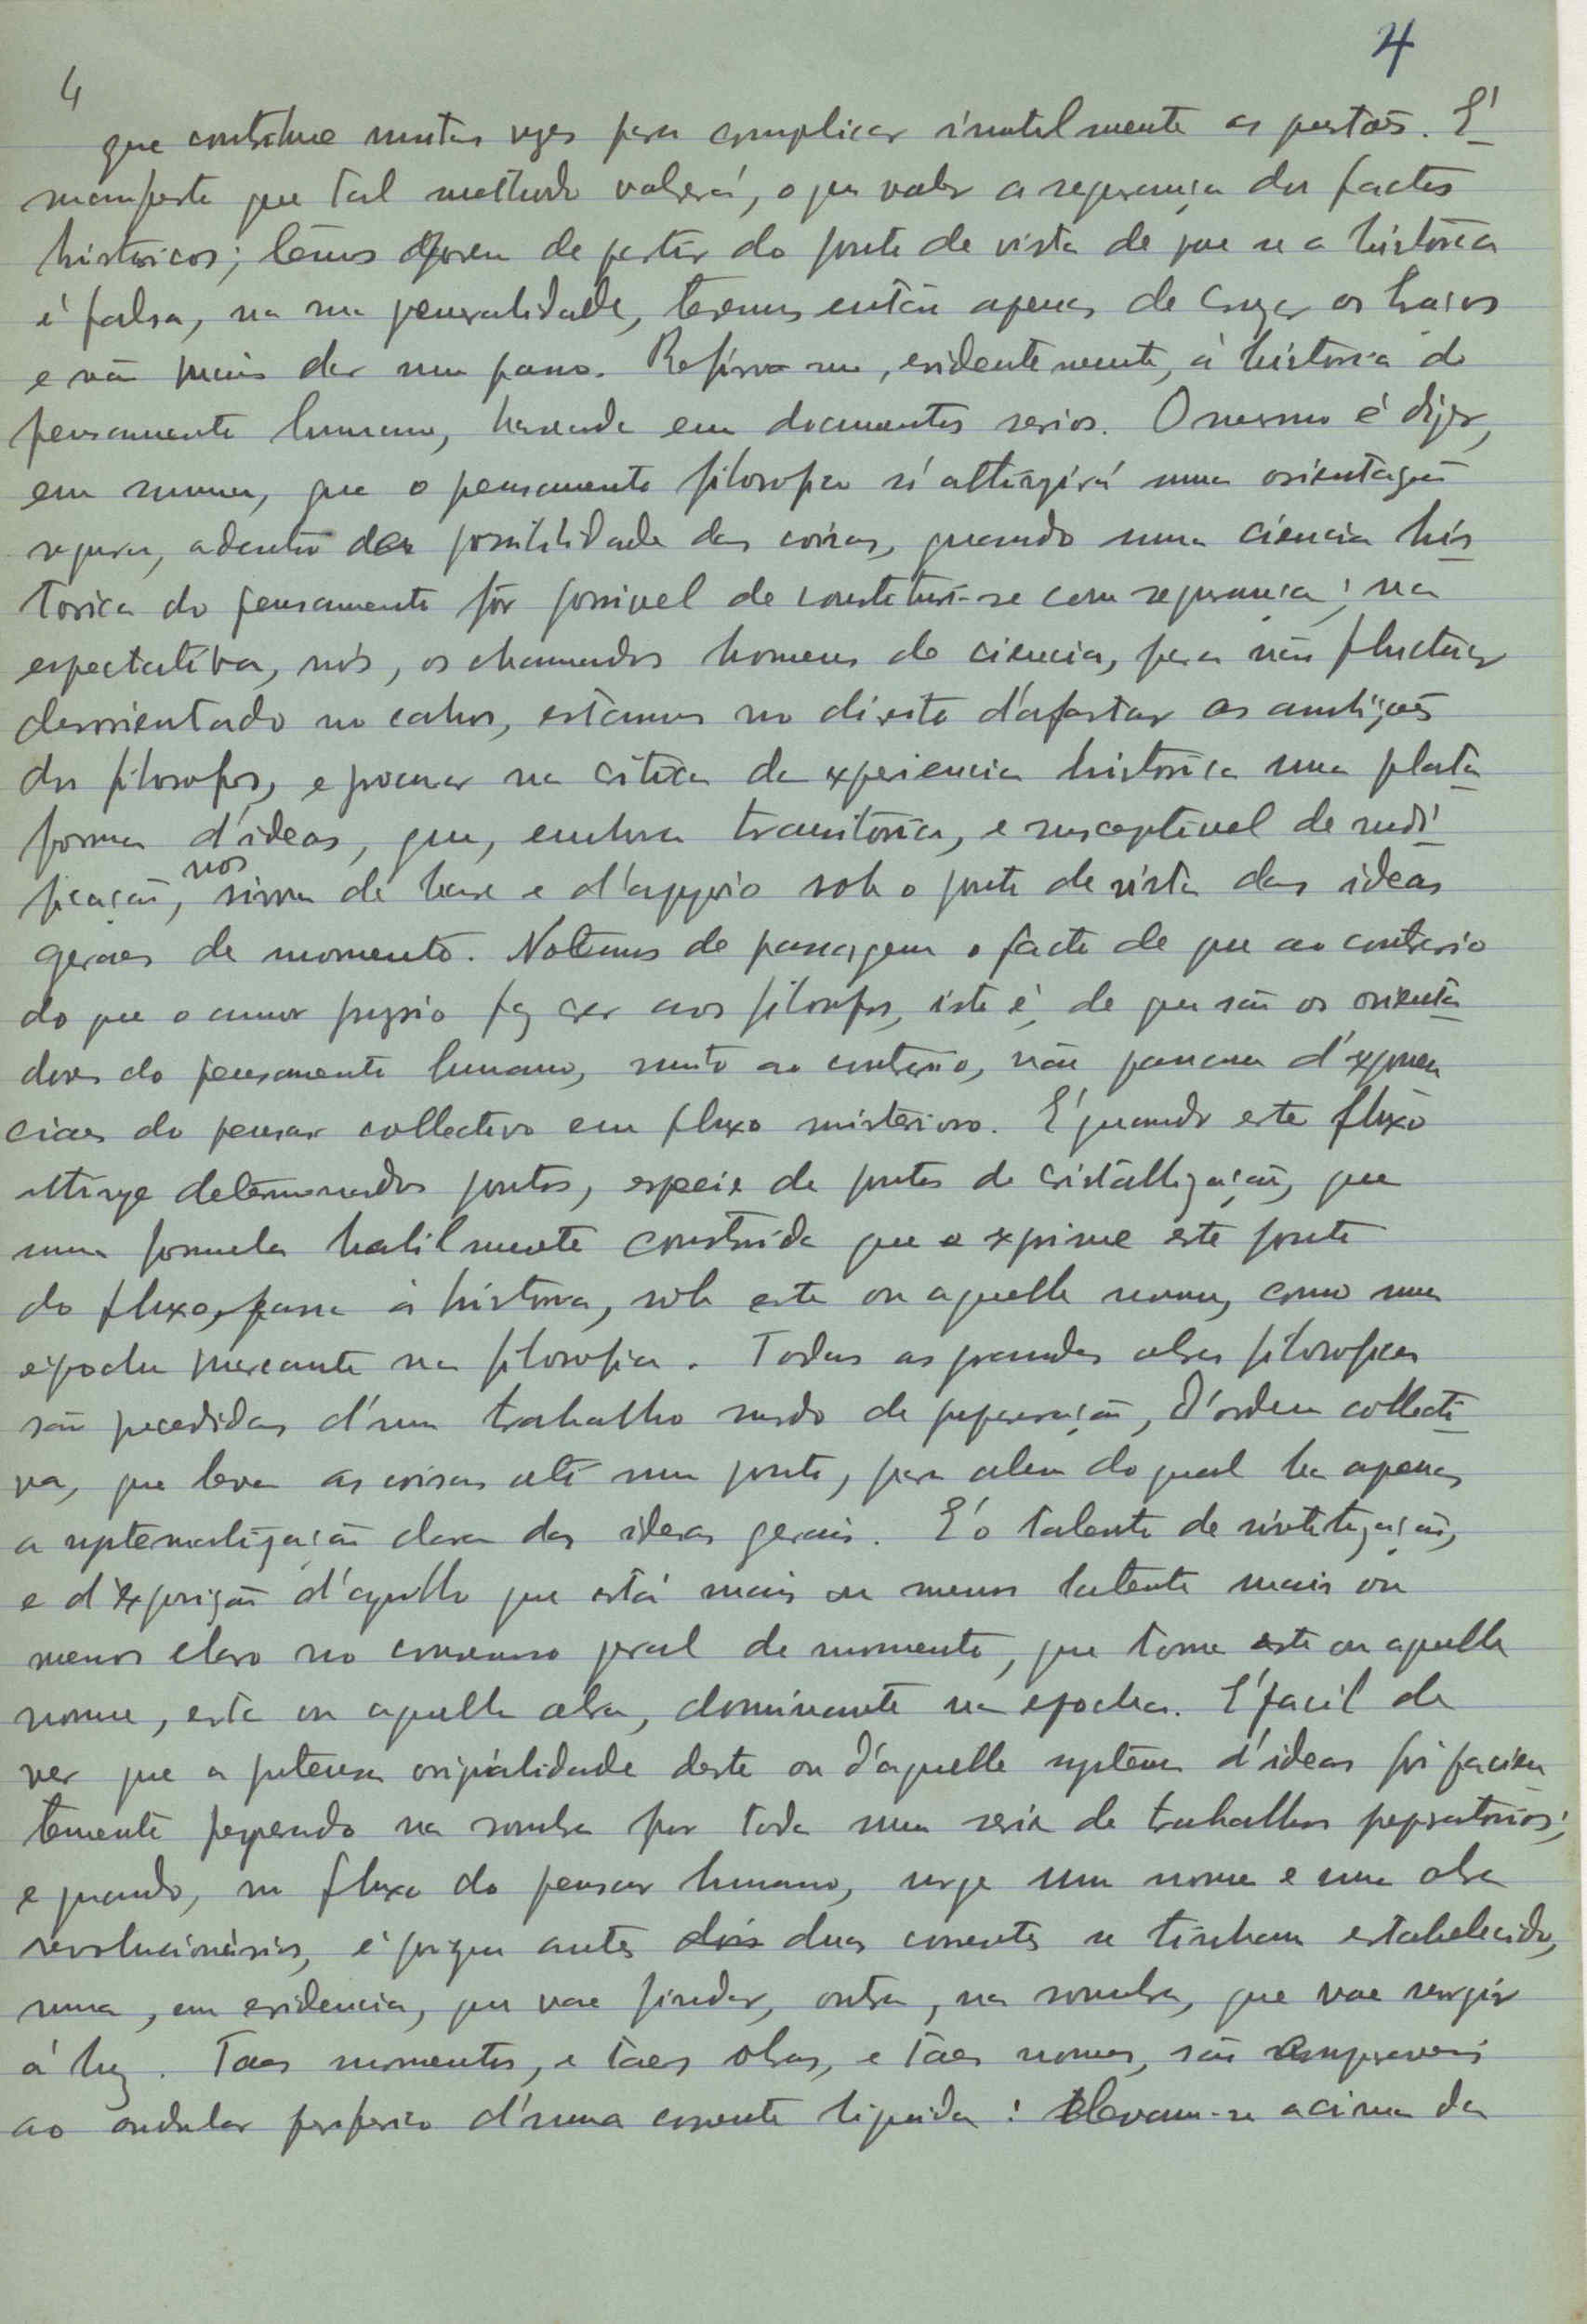 4
4
que contribue muitas vezes para complicar inutilmente as questões. E'
manifesto que tal methodo valerá, o que valer a segurança dos factos
historicos; temos porem de partir do ponto de vista de que se a historia
é falsa, na sua generalidade, teremos então apenas de cruzar os braços
e não mais dar um passo. Refiro-me, evidentemente, á historia do
pensamento humano, baseada em documentos serios. O mesmo é dizer,
em summa, que o pensamento filosofico só attingirá uma orientação
segura, adentro da possibilidade das coisas, quando uma ciencia his
torica do pensamento fôr possivel de constituir-se com segurança; na
espectativa, nós, os chamados homens de ciencia, para não fluctuar
desorientado no cahos, estamos no direito d'afastar as ambições
dos filosofos, e procurar na critica da experiencia historica uma plata
forma d'ideas, que, embora transitoria, e susceptivel de modi
ficação, nos sirva de base e d'appoio sob o ponto de vista das ideas
geraes de momento. Notemos de passagem o facto de que ao contrario
do que o amor proprio faz crer aos filosofos, isto é, de que são os orienta
dores do pensamento humano, muito ao contrario, não passam d'exponen
ciaes do pensar collectivo em fluxo misterioso. E' quando este fluxo
attinge determinados pontos, especie de pontos de cristallização, que
uma formula habilmente construida que exprime este ponto
do fluxo, passa á historia, sob este ou aquelle nome, como uma
epocha marcante na filosofia. Todas as grandes obras filosoficas
são precedidas d'um trabalho surdo de preparação, d'ordem collecti
va, que leva as coisas até um ponto, para alem do qual ha apenas
a systematização clara das ideas gerais. E' o talento de sintetização,
e d'exposição d'aquillo que está mais ou menos latente mais ou
menos claro no consenso geral de momento, que torna este ou aquelle
nome, esta ou aquella obra, dominante na epocha. E' facil de
ver que a pretensa originalidade deste ou d'aquelle systema d'ideas foi pacien
temente preparado na sombra por toda uma serie de trabalhos preparatorios;
e quando, no fluxo do pensar humano, surge um nome e uma obra
revolucionarios, é porque antes duas correntes se tinham estabelecido,
uma, em evidencia, que vae findar, outra, na sombra, que vae surgir
á luz. Taes momentos, e taes obras, e taes nomes, são comparaveis
ao ondular periferico d'uma corrente liquida: Elevam-se acima da